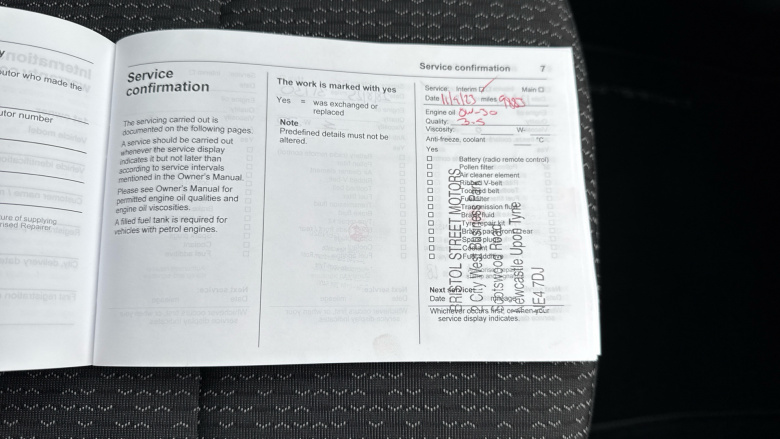 utor who made the
utor number
ure of supplying
rised Repairer
Service
confirmation
The servicing carried out is
documented on the following pages.
A service should be carried out
whenever the service display
indicates it but not later than
according to service intervals
mentioned in the Owner's Manual.
Please see Owner's Manual for
permitted engine oil qualities and
engine oil viscosities.
A filled fuel tank is required for
vehicles with petrol engines.
The work is marked with yes
Yes = was exchanged or
replaced
Note
Predefined details must not be
altered.
Service confirmation 7
Service Interim Main
Date miles
Engine oil 0W-30
Quality:
Viscosity: W-
Anti-freeze, coolant °C
Yes
Battery (radio remote control)
Pollen filter
Air cleaner element
Ribbed V-belt
Toothed belt
Fuel filter
Transmission fluid
Brake fluid
Tyre repair kit
Spark plugs
Coolant
Next service:
Date
Whichever occurs first, or when your
service display indicates.
BRISTOL STREET MOTORS
City West Business Park
Scotswood Road
Newcastle Upon Tyne
NE4 7DJ